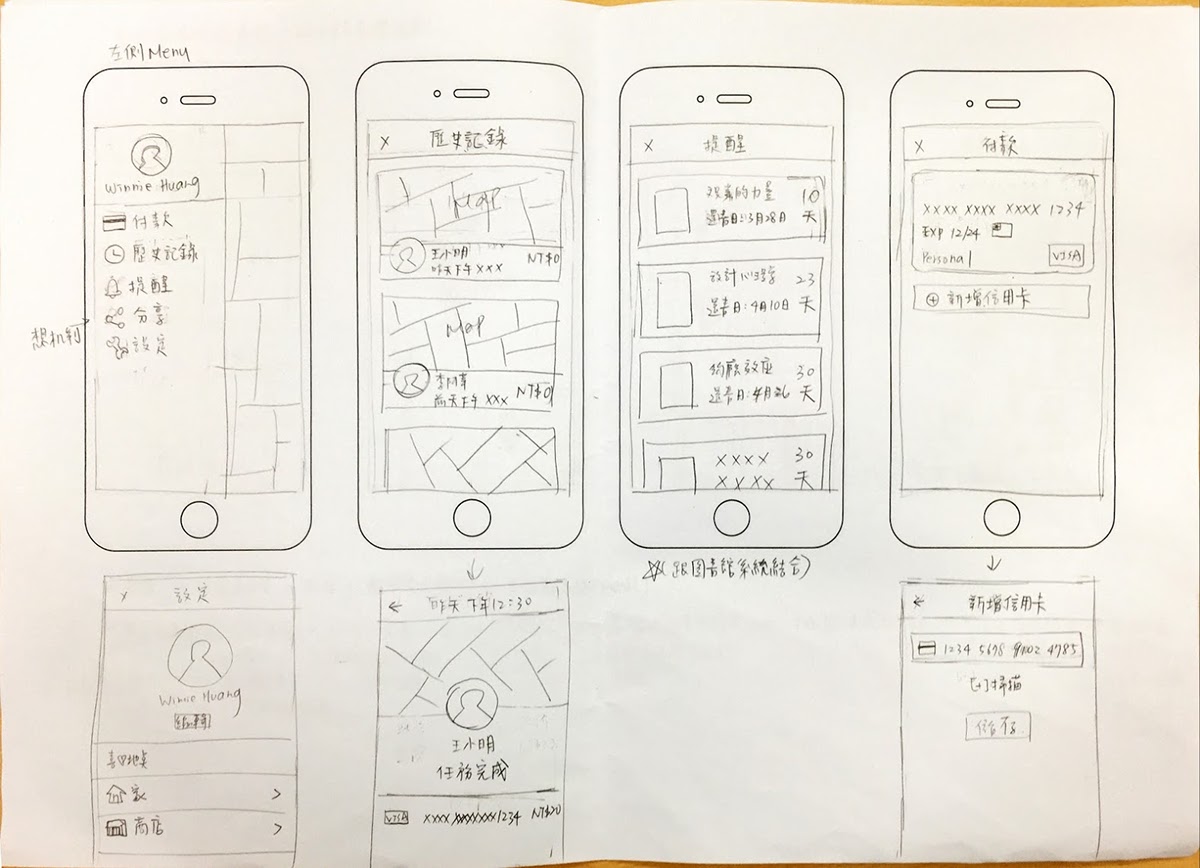 左側 Menu
Winnie Huang
付款
歷史記錄
提醒
分享
設定
X 歷史記錄
Map
王小明
昨天下午 XXX
NT$0
Map
前天下午 XXX
NT$0
X 提醒
10
還書日:3月28日 天
設計心理學 23
還書日:4月10日 天
30
還書日:4月 天
XXXX 30
XXXX 天
X 付款
XXXX XXXX XXXX 1234
Exp 12/24
Personal VISA
新增信用卡
(跟圖書館系統結合)
X 設定
Winnie Huang
編輯
家 >
商店 >
← 昨天下午12:30
王小明
任務完成
VISA XXXX XXXXXXX1234 NT$20
← 新增信用卡
1234 5678 9102 4785
掃描
儲存